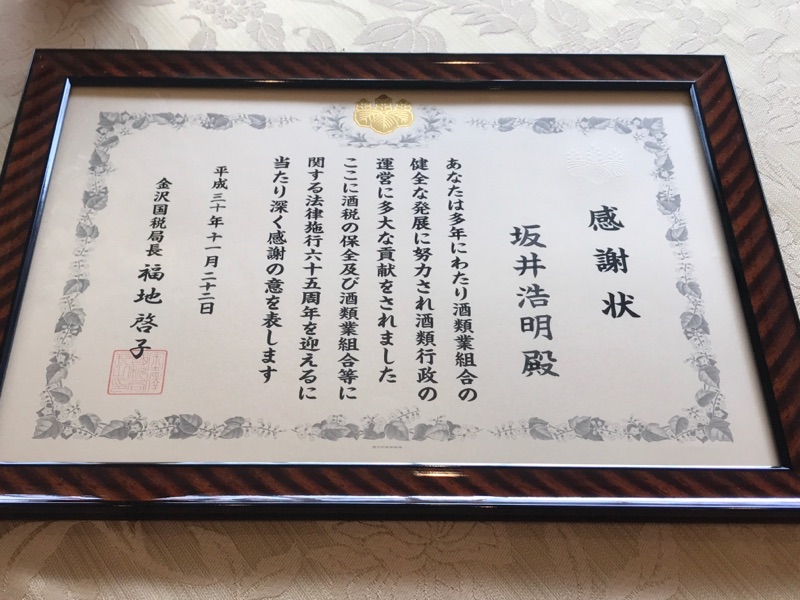 感謝状
坂井浩明殿
あなたは多年にわたり酒類業組合の
健全な発展に努力され酒類行政の
運営に多大な貢献をされました
ここに酒税の保全及び酒類業組合等に
関する法律施行六十五周年を迎えるに
当たり深く感謝の意を表します
平成三十年十一月二十二日
金沢国税局長 福地啓子